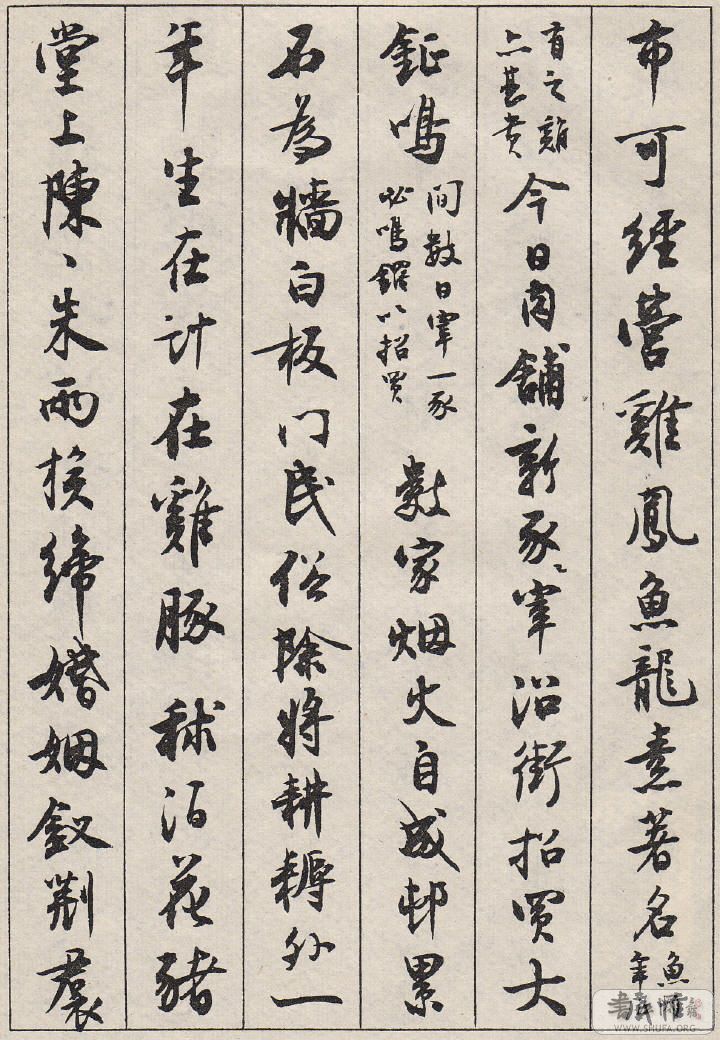 布可經營雞鳳魚龍素著名魚年
有之雞亦甚貴今日肉舖新豕宰沿街招買大
鉦鳴間數日宰一豕必鳴鑼以招買數家烟火自成邨累
石為牆白板门民俗除將耕耨外一
年生在計在雞豚秫酒花豬
堂上陳〻朱兩族締婚姻釵荆裠
WWW.SHUFA.ORG